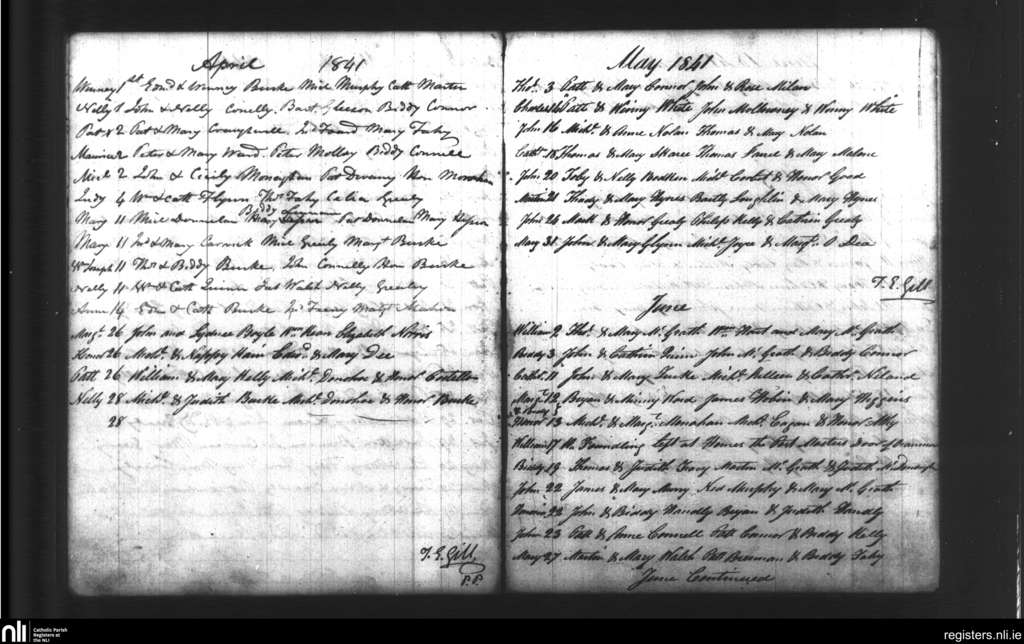 April 1841
Winney 1st Edmd & Winney Burke Mick Murphy Cath Marten
Nelly 1 John & Nelly Conelly. Bart Gleeson Biddy Connor
Pat 2 Pat & Mary Mary Fahy
Maurice 2 Peter & Mary Ward. Peter Molloy Biddy Connell
Mick 2 John & Cicily Monaghan Pat Hon
Judy 4 Wm & Cath Flynn Thos Fahy Celia Greely
Biddy
Mary 11 Mick Donnelan Pat Donnelan Mary
Mary 11 Jno & Mary Mick Greely Margt Burke
Joseph 11 Thos & Biddy Burke. John Connelly Hon Burke
Nelly 11 Wm & Cath Quinn Walsh Nelly Greeley
Anne 14 Edm & Cath Burke Margt
Margt 26 John and Boyle Wm Kean Elizabeth Norris
Honor 26 Michl & Edwd & Mary Dee
Patt 26 William & Mary Kelly Michl Donohoe & Honor Costello
Nelly 28 Michl & Judith Burke Michl Donohoe & Honor Burke
28
T. E. Gill
P.P.
May 1841
Thos. 3 Patt & Mary Connor John & Rose Milan
Charles Patt & Winny White John & Winny White
John 16 Michl. & Anne Nolan Thomas & Mary Nolan
Cath. 18 Thomas & Mary Thomas & Mary Malone
John 20 Toby & Nelly Bodkin Michl & Honor Good
Martin 21 Thady & Mary Hynes Bartly Loughlin & Mary Hynes
John 24 Mark & Honor Gealy Philip Kelly & Catrin Gealy
May 31. John & Mary Glynn Michl. Joyce & Margt. O Dea
T. E. Gill
June
William 2 Thos. & Mary Mc Grath Wm and Mary Mc Grath
Biddy 3 John & Catrin Quinn John Mc Grath & Biddy Connor
11 John & Mary Michl. & Cathr. Niland
Margt. 12 Bryan & Winny Ward James & Mary Higgins
Honor 13 Michl. & Margt. Monahan Michl. & Honor
William 17 A Foundling left at the Post Masters door
Biddy 19 Thomas & Judith Martin Mc Grath & Judith Mc Donough
John 22 James & Mary Ned Murphy & Mary Mc Grath
22 John & Biddy Handly Bryan & Judith Handly
John 23 Patt & Anne Connell Patt Connor & Biddy Kelly
Mary 27 Martin & Mary Walsh Patt Brennan & Biddy Fahy
June Continued
nli Catholic Parish Registers at the NLI
registers.nli.ie